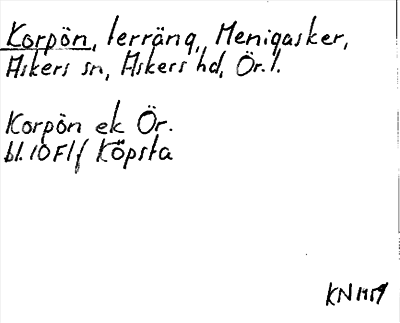 Korpön, terräng, Menigasker,
Askers sn, Askers hd, Ör. l.
Korpön ek Ör.
bl. 10F1f Köpsta